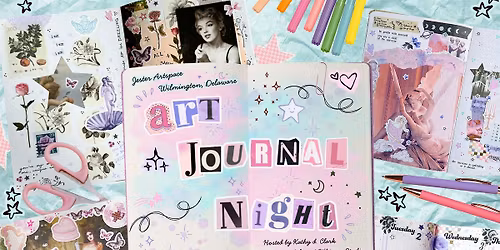 Jester Artspace
Wilmington, Delaware
art
JOURNAL
Night
Hosted by Kathy d. Clark
I am
I am
I am
Tuesday
2
Wednesday